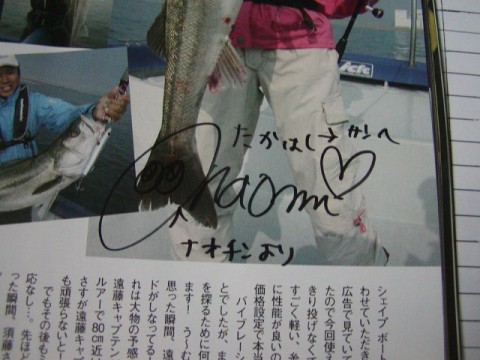 たかはしさんへ
Naomi
ナオチンより
シェイプ ボート
わせていただき
広告で見てい
たので今回使
きり投げなく
すごく軽い、糸
に性能が良いの
価格設定で本当
バイブレーシ
とでしたが、ま
を探るために何
ます！う～む
思った瞬間、遠
ドがしなってる
れは大物の予感
遠藤キャプテン
ルアーで80cm近
さすが遠藤キャプ
も頑張らないと
でもその後もう
応なし…。先ほど
った瞬間、須藤さ